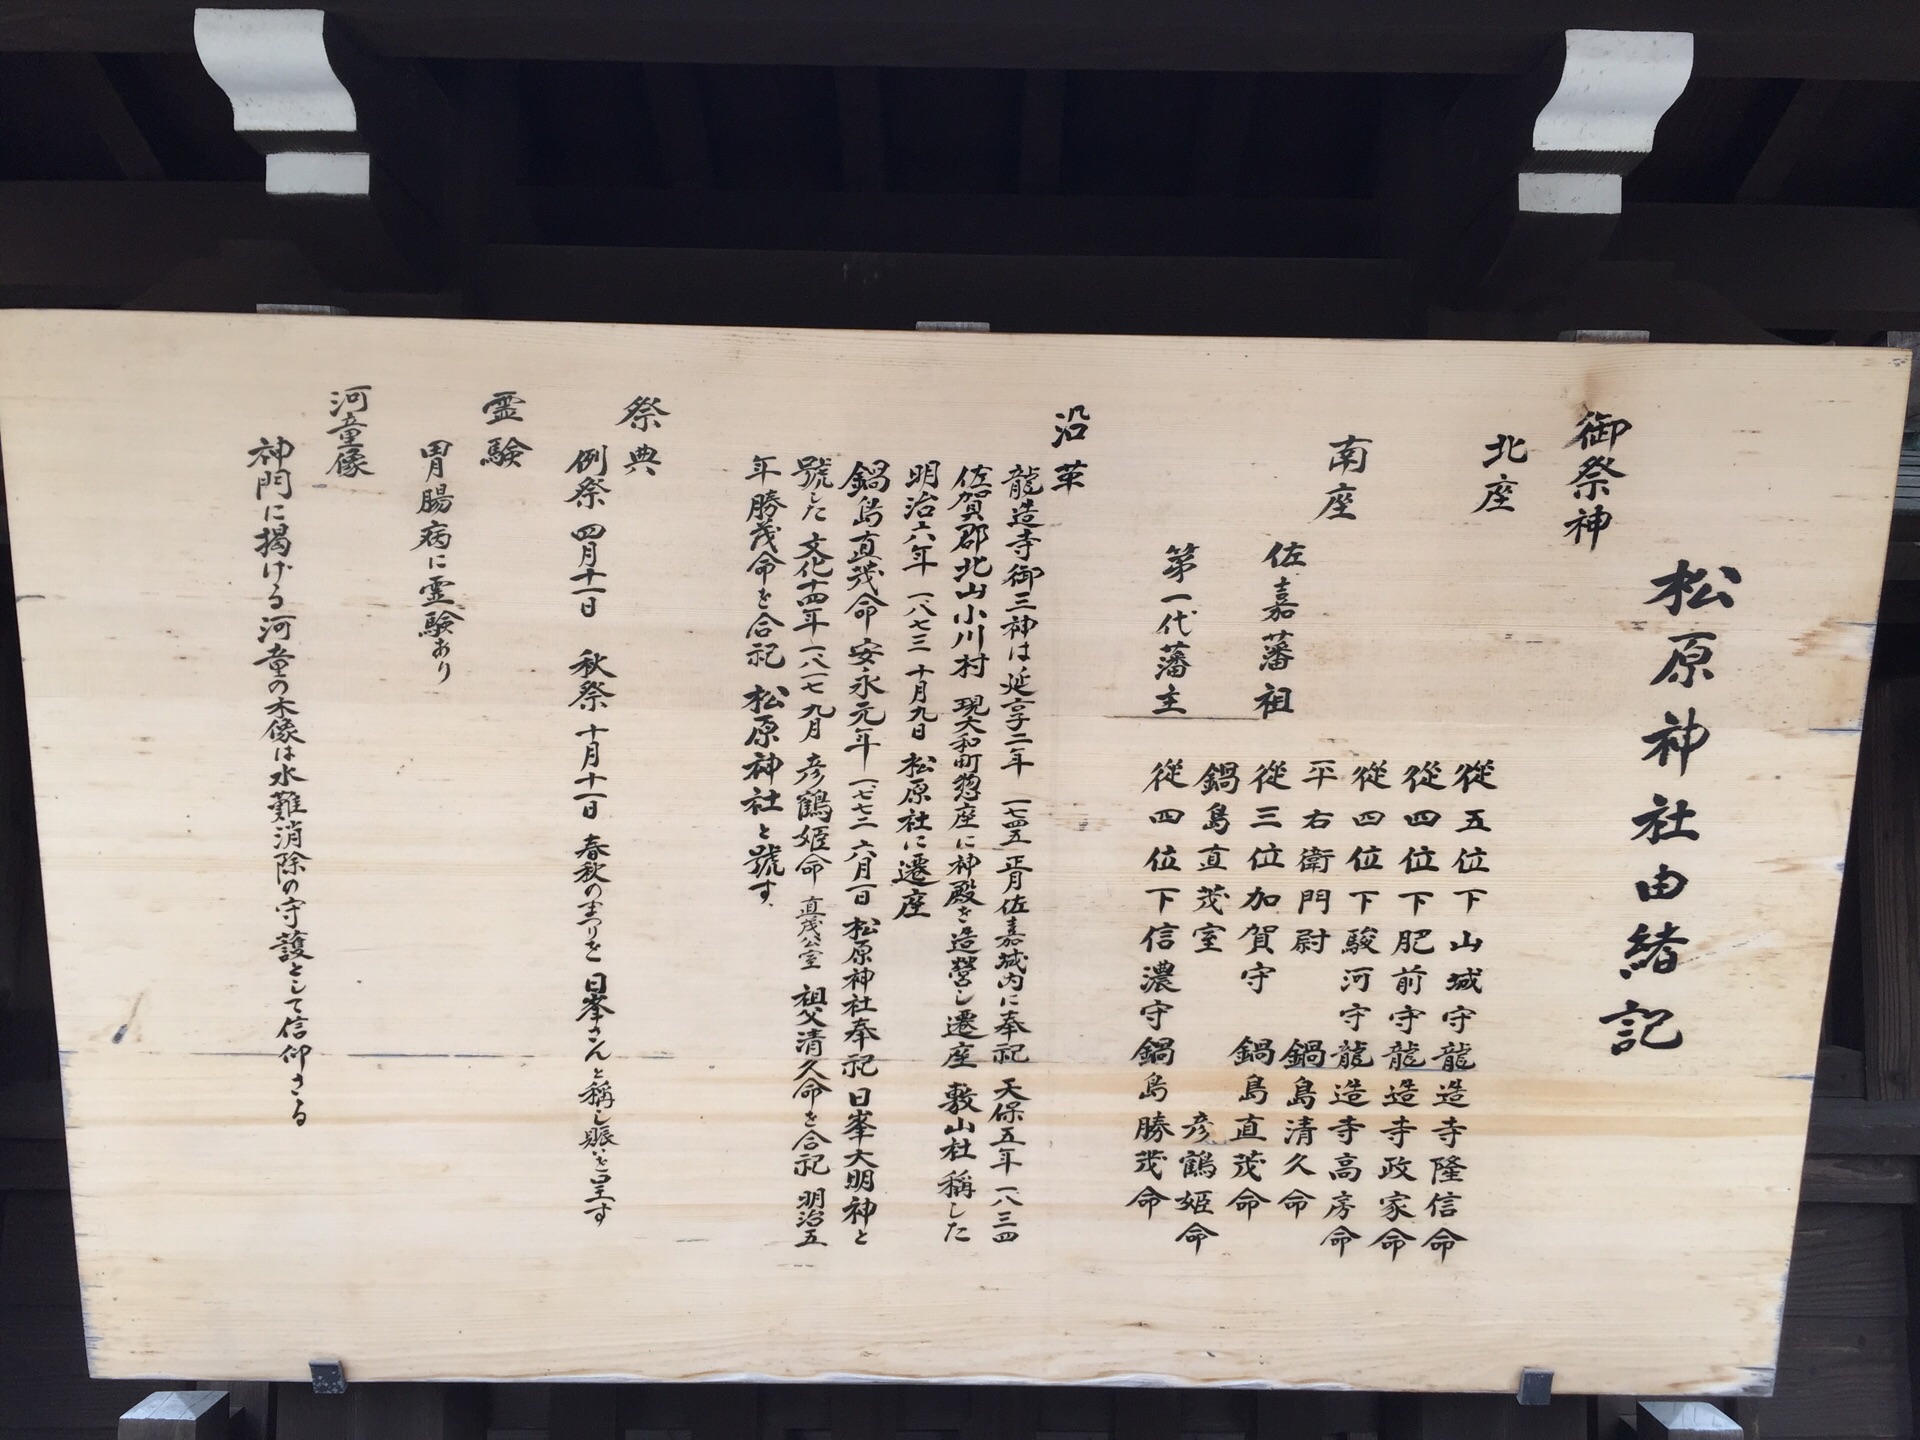 松原神社由緒記
御祭神
北座
從五位下山城守龍造寺隆信命
從四位下肥前守龍造寺政家命
從四位下駿河守龍造寺高房命
南座
平右衛門尉 鍋島清久命
佐嘉藩祖 從三位加賀守 鍋島直茂命
鍋島直茂室 彦鶴姫命
第一代藩主 從四位下信濃守鍋島勝茂命
沿革
龍造寺御三神は延享二年 一七四五 正月佐嘉城内に奉祀 天保五年 一八三四
佐賀郡北山小川村 現大和町惣座に神殿を造營し遷座 敷山社 稱した
明治六年 一八七三 十月九日 松原社に遷座
鍋島直茂命 安永元年 一七七二 六月一日 松原神社奉祀 日峯大明神と
號した 文化十四年 一八一七 九月 彦鶴姫命 直茂公室 祖父清久命を合祀 明治五
年勝茂命を合祀 松原神社と號す
祭典
例祭 四月十一日 秋祭 十月十一日 春秋のまつりを 日峯さんと稱し賑いを呈す
霊験
胃腸病に霊験あり
河童像
神門に掲げる河童の木像は水難消除の守護として信仰さる